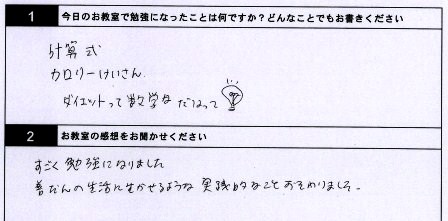 1 今日のお教室で勉強になったことは何ですか？どんなことでもお書きください
計算式
カロリーけいさん.
ダイエットって数学なだなって
2 お教室の感想をお聞かせください
すごく勉強になりました
普だんの生活に生かせるような実践的なことおそわりました.